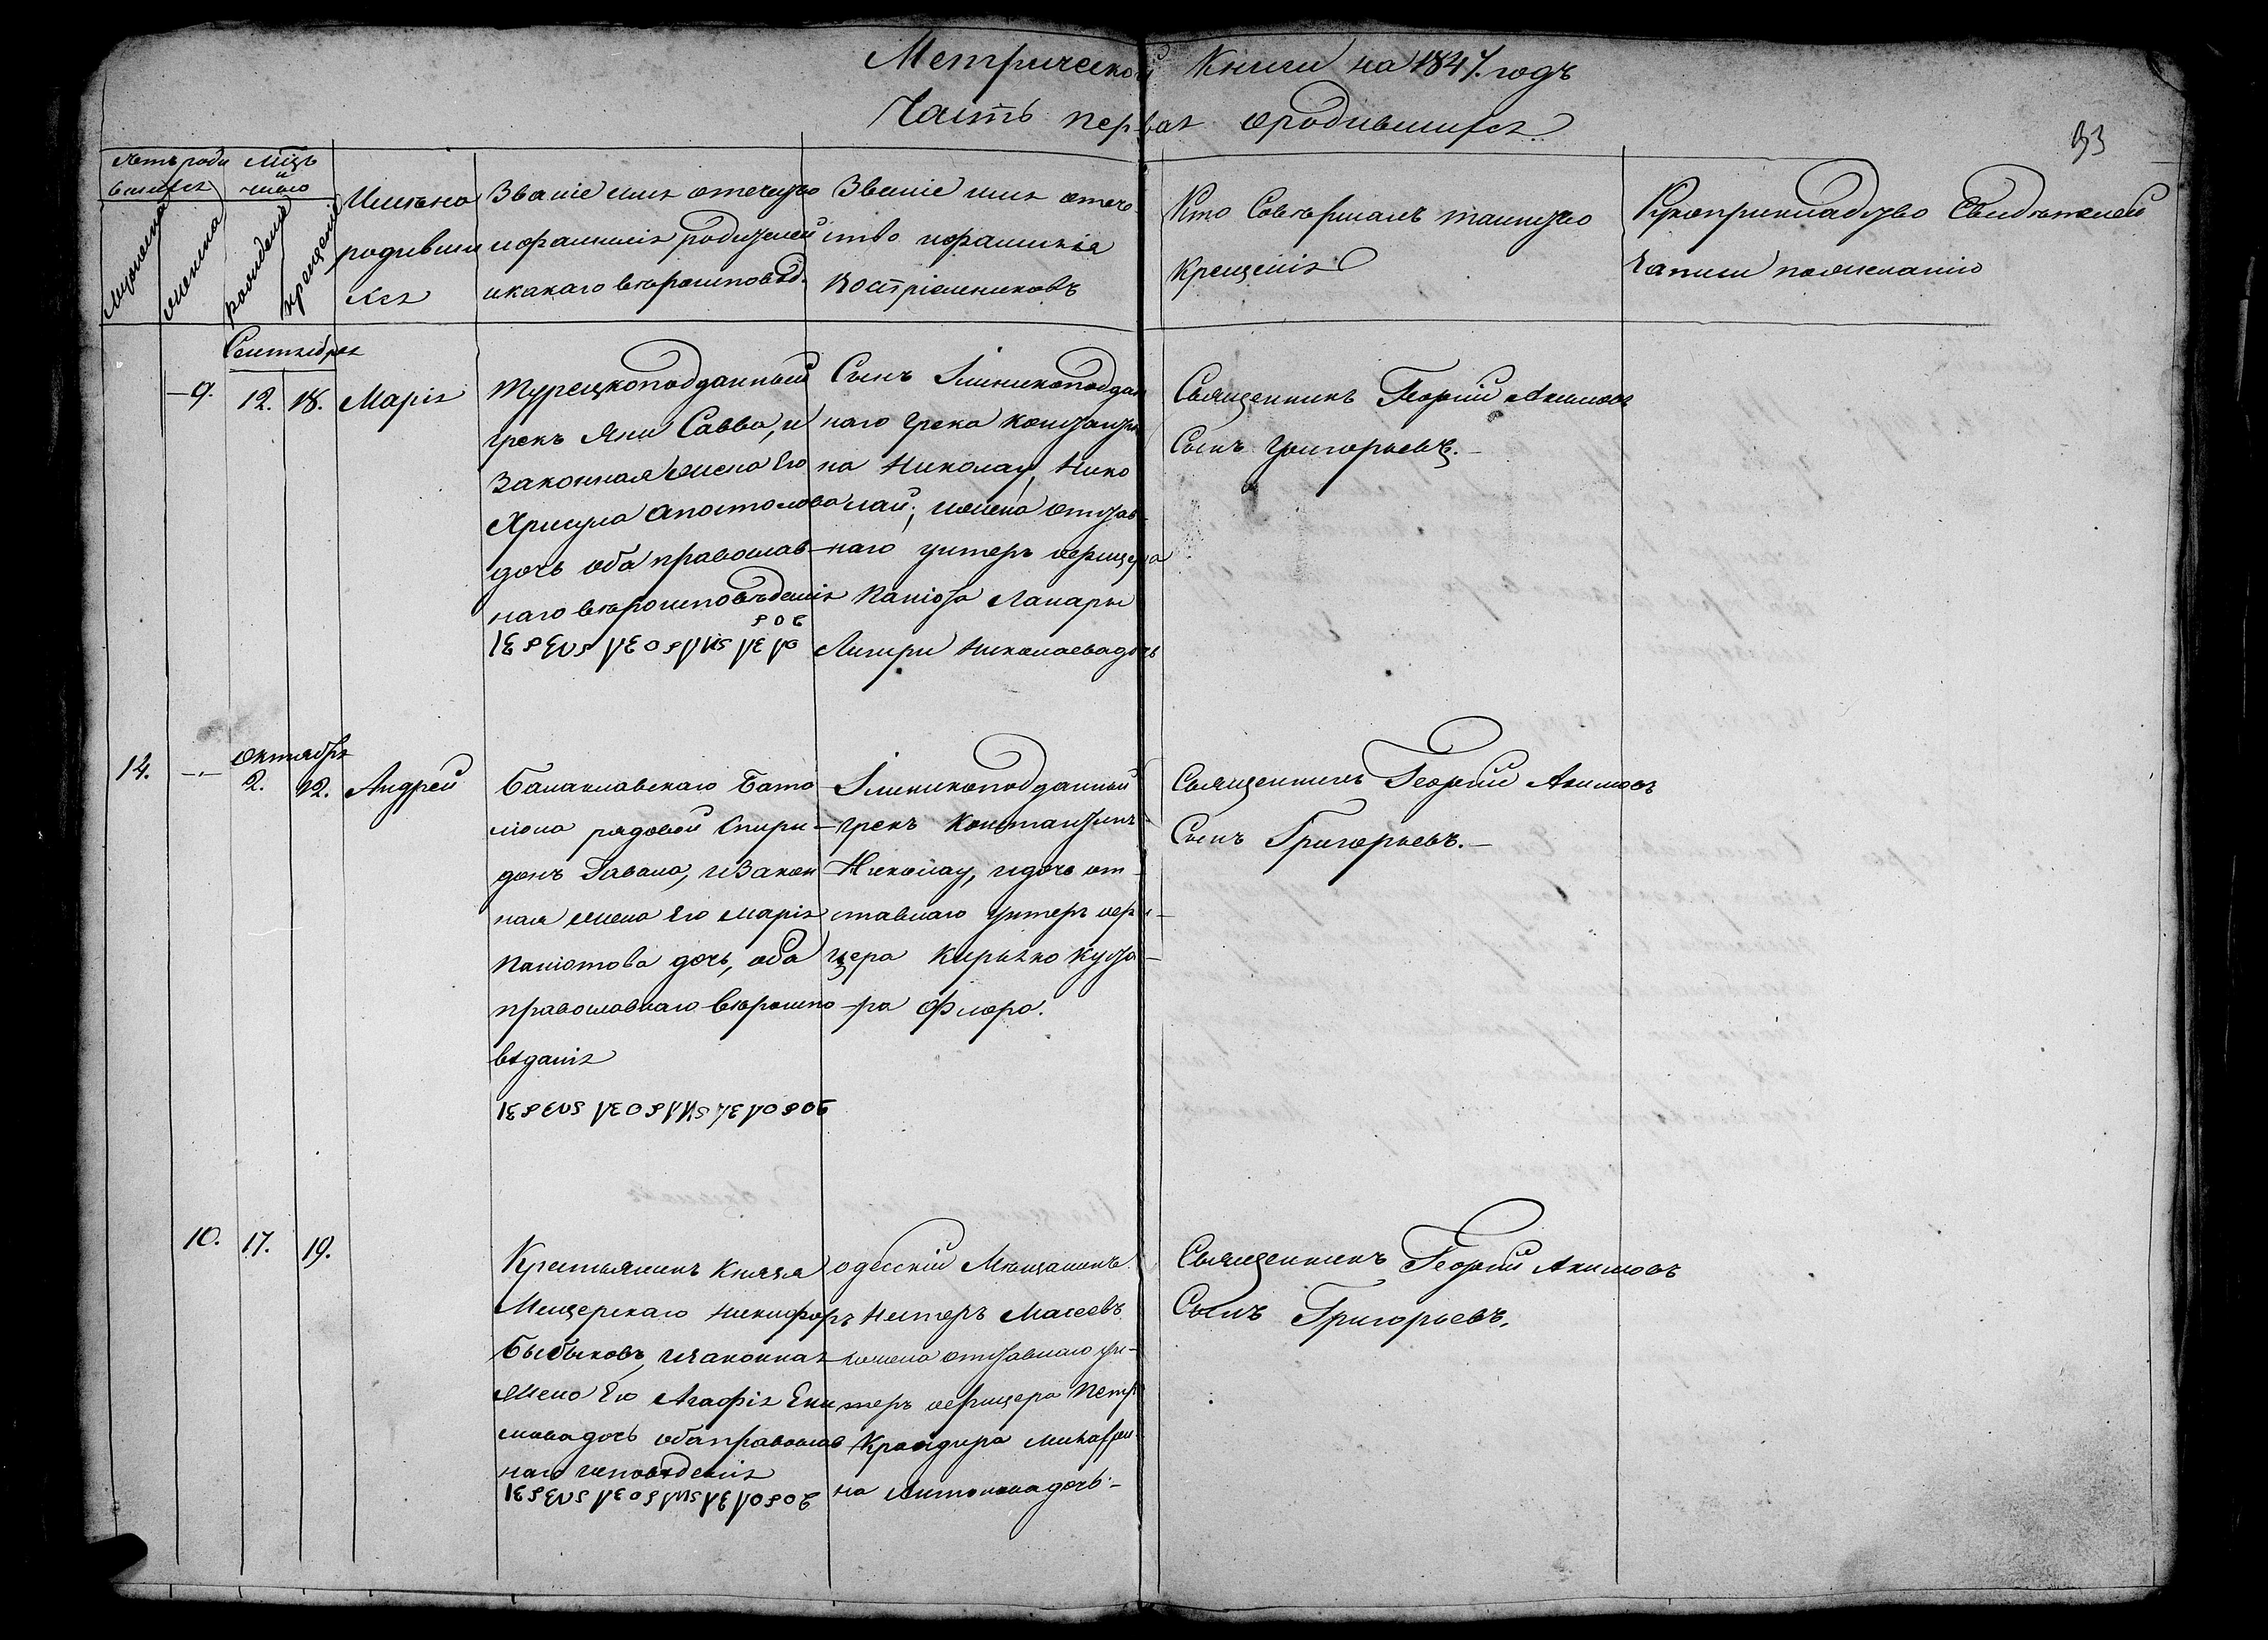 Метрической Книги на 1847. годъ
Часть первая ородившихся
93
Летъ роди
вшихся
мѣцъ
и
число
мужеска
женска
рожденія
крещенія
Имѣна
родивши
хся
Званіе имя отечеству
ифамилія родителей
икакаго вѣроисповѣд.
Званіе имя отече
ство ифамилія
Воспріемниковъ
Кто Совѣршалъ таинство
Крещенія
Рукоприкладство Свидѣтелей
записи пожеланію
Сентября
9. 12. 18. Марія
Турецкоподданный
грекъ Яни Савва, и
Законная жена Его
Хрисула Апостолова
дочь оба православ
наго вѣроисповѣденія
Сынъ Элиникоподдан
наго грека Константи
на Николау, Нико
лай; ижена отстав
наго унтеръ офицера
Паніота Лакары
Лигири Николаевадочь
Священникъ Георгій Акимовъ
Сынъ Григорьевъ.
Октября
14. 2. 12. Андрей
Балаклавскаго Бата
ліона рядовой Спири
донъ Гавала, иЗакон
ная жена Его Марія
Паніотова дочь, оба
православнаго вѣроиспо
вѣданія
Элиникоподданный
грекъ Константинъ
Николау, идочь от
ставнаго унтеръ офи
цера Кирьяко Кутзо
ра Флора.
Священникъ Георгій Акимовъ
Сынъ Григорьевъ.
10. 17. 19.
Крестьянинъ Князя
Мещерскаго Никифоръ
Быбыковъ, изаконная
жена Его Агафія Еки
мовадочь обаправослав
наго исповѣденія
одесскій Мѣщанинъ
Нестеръ Масеевъ
ижена отставнаго ун
теръ офицера Петр
на Антоновадочь
Священникъ Георгій Акимовъ
Сынъ Григорьевъ.